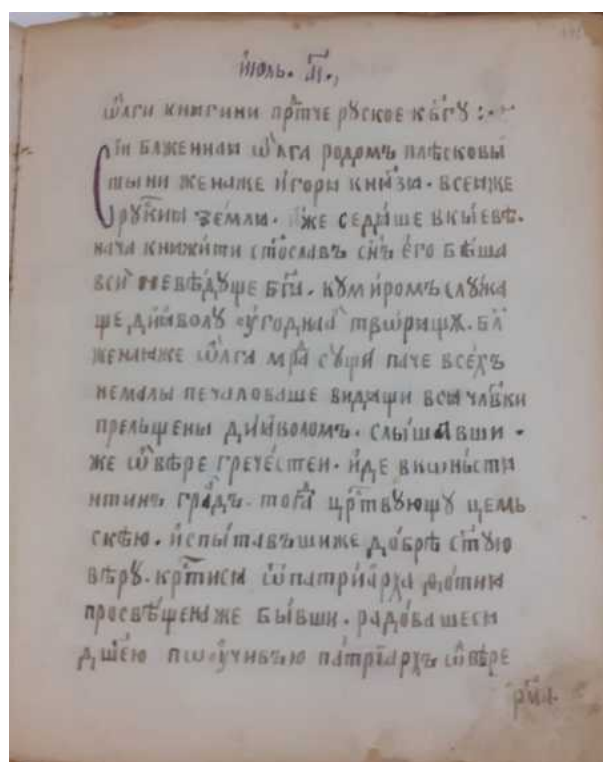 июль. а҃і.,
ѿлги кнѧгини прⷣтче рꙋское к бг҃ꙋ :·~
Сїи блаженнаѧ ѡ҆лга родомъ плѣсковы
тыни жена же и҆горѧ кнѧзѧ. всеѧ же
рꙋскиѧ землѧ. же седѧше в кы́еве.
нача кнѧжи́ти ст҃ославъ сн҃ъ е҆го бѣша
вси невѣ́дꙋще бг҃а. кꙋми́ром слꙋжа
ще, дїа́волꙋ ᲂу҆годнаѧ твѡрѧщѫ. бл҃
женаѧ же ѡ҆лга сꙋщи паче всѣхъ
немалы печаловаше видѧщи всѧ чл҃вки
прельщены дїа́волом. слы́шавши.
же ѡ҆ вѣре грече́стеи. и҆де в кѡнь́стѧ
нтинь гра́дъ. тогⷣа црⷭ҇твꙋющꙋ цемь
скѣю. и҆спыта́въши же до́брѣ ст҃ꙋю
вѣрꙋ. крⷭ҇тисѧ ѿ патрїа́рха фо́тиѧ
просвѣ́щена же бы́вши. ра́довашесѧ
дш҃е́ю поᲂу҆чивъ ю патрїархъ ѡ҆ вѣре